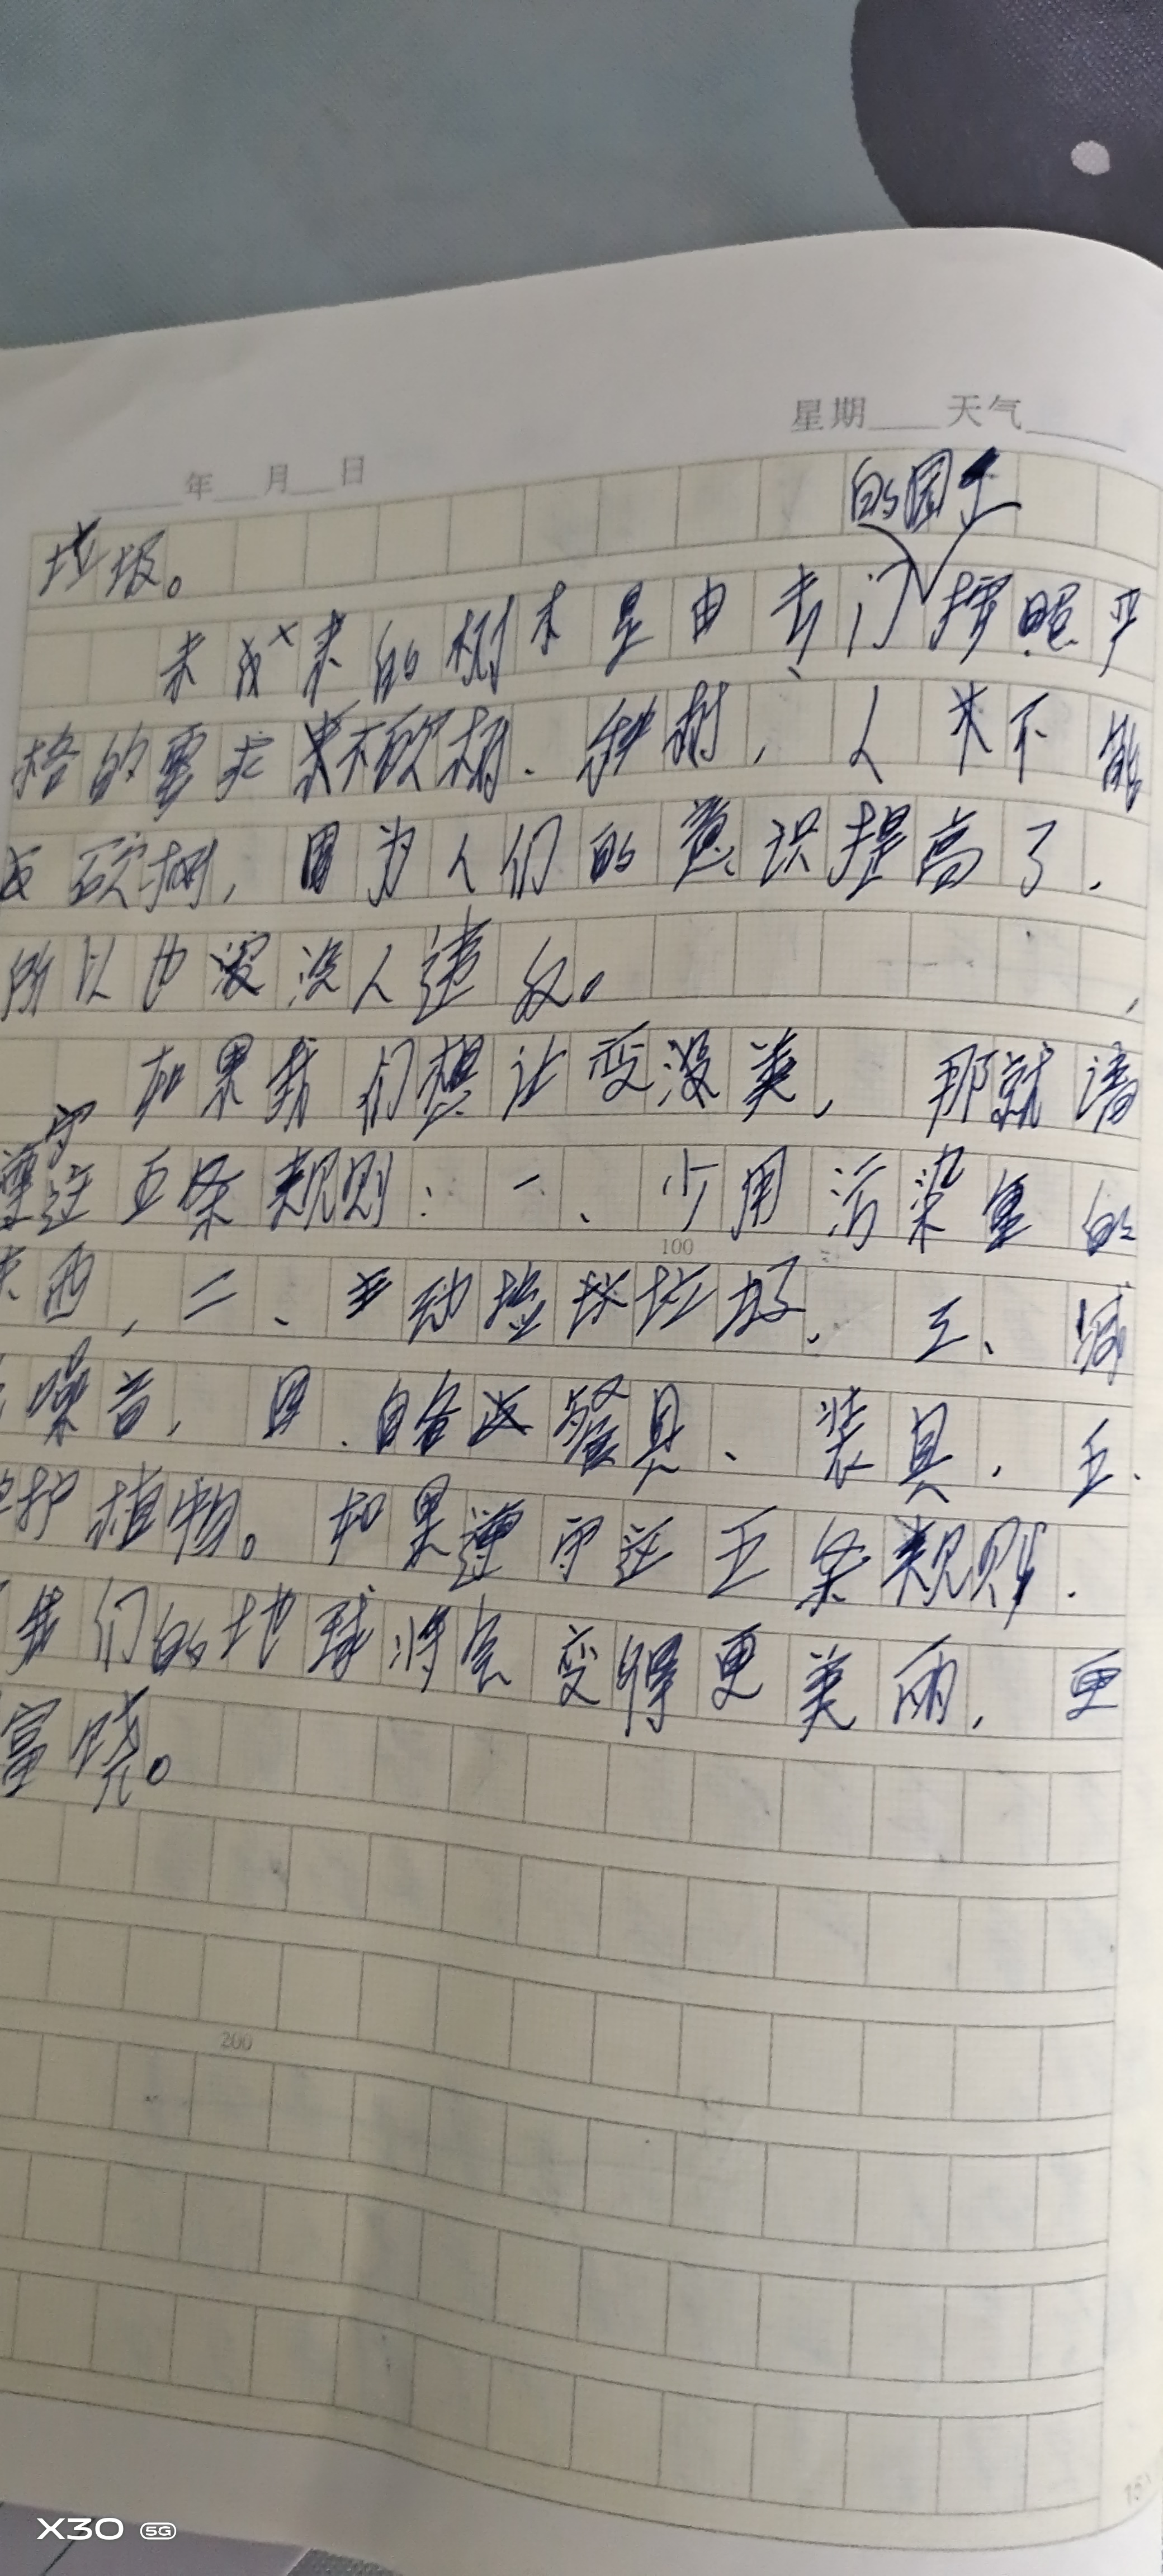 星期 天气
年 月 日
的园丁
垃圾。
未来的树木是由专门按照严
格的要求来砍树、种树，人不能
砍树，因为人们的意识提高了，
所以也没人违反。
如果我们想让变没美，那就请
遵守这五条规则：一、少用污染重的
100
东西，二、主动捡垃圾，三、减
噪音，四、自备餐具、装具，五、
护植物。如果遵守这五条规则，
我们的地球将会变得更美丽，更
富饶。
200
X30 5G